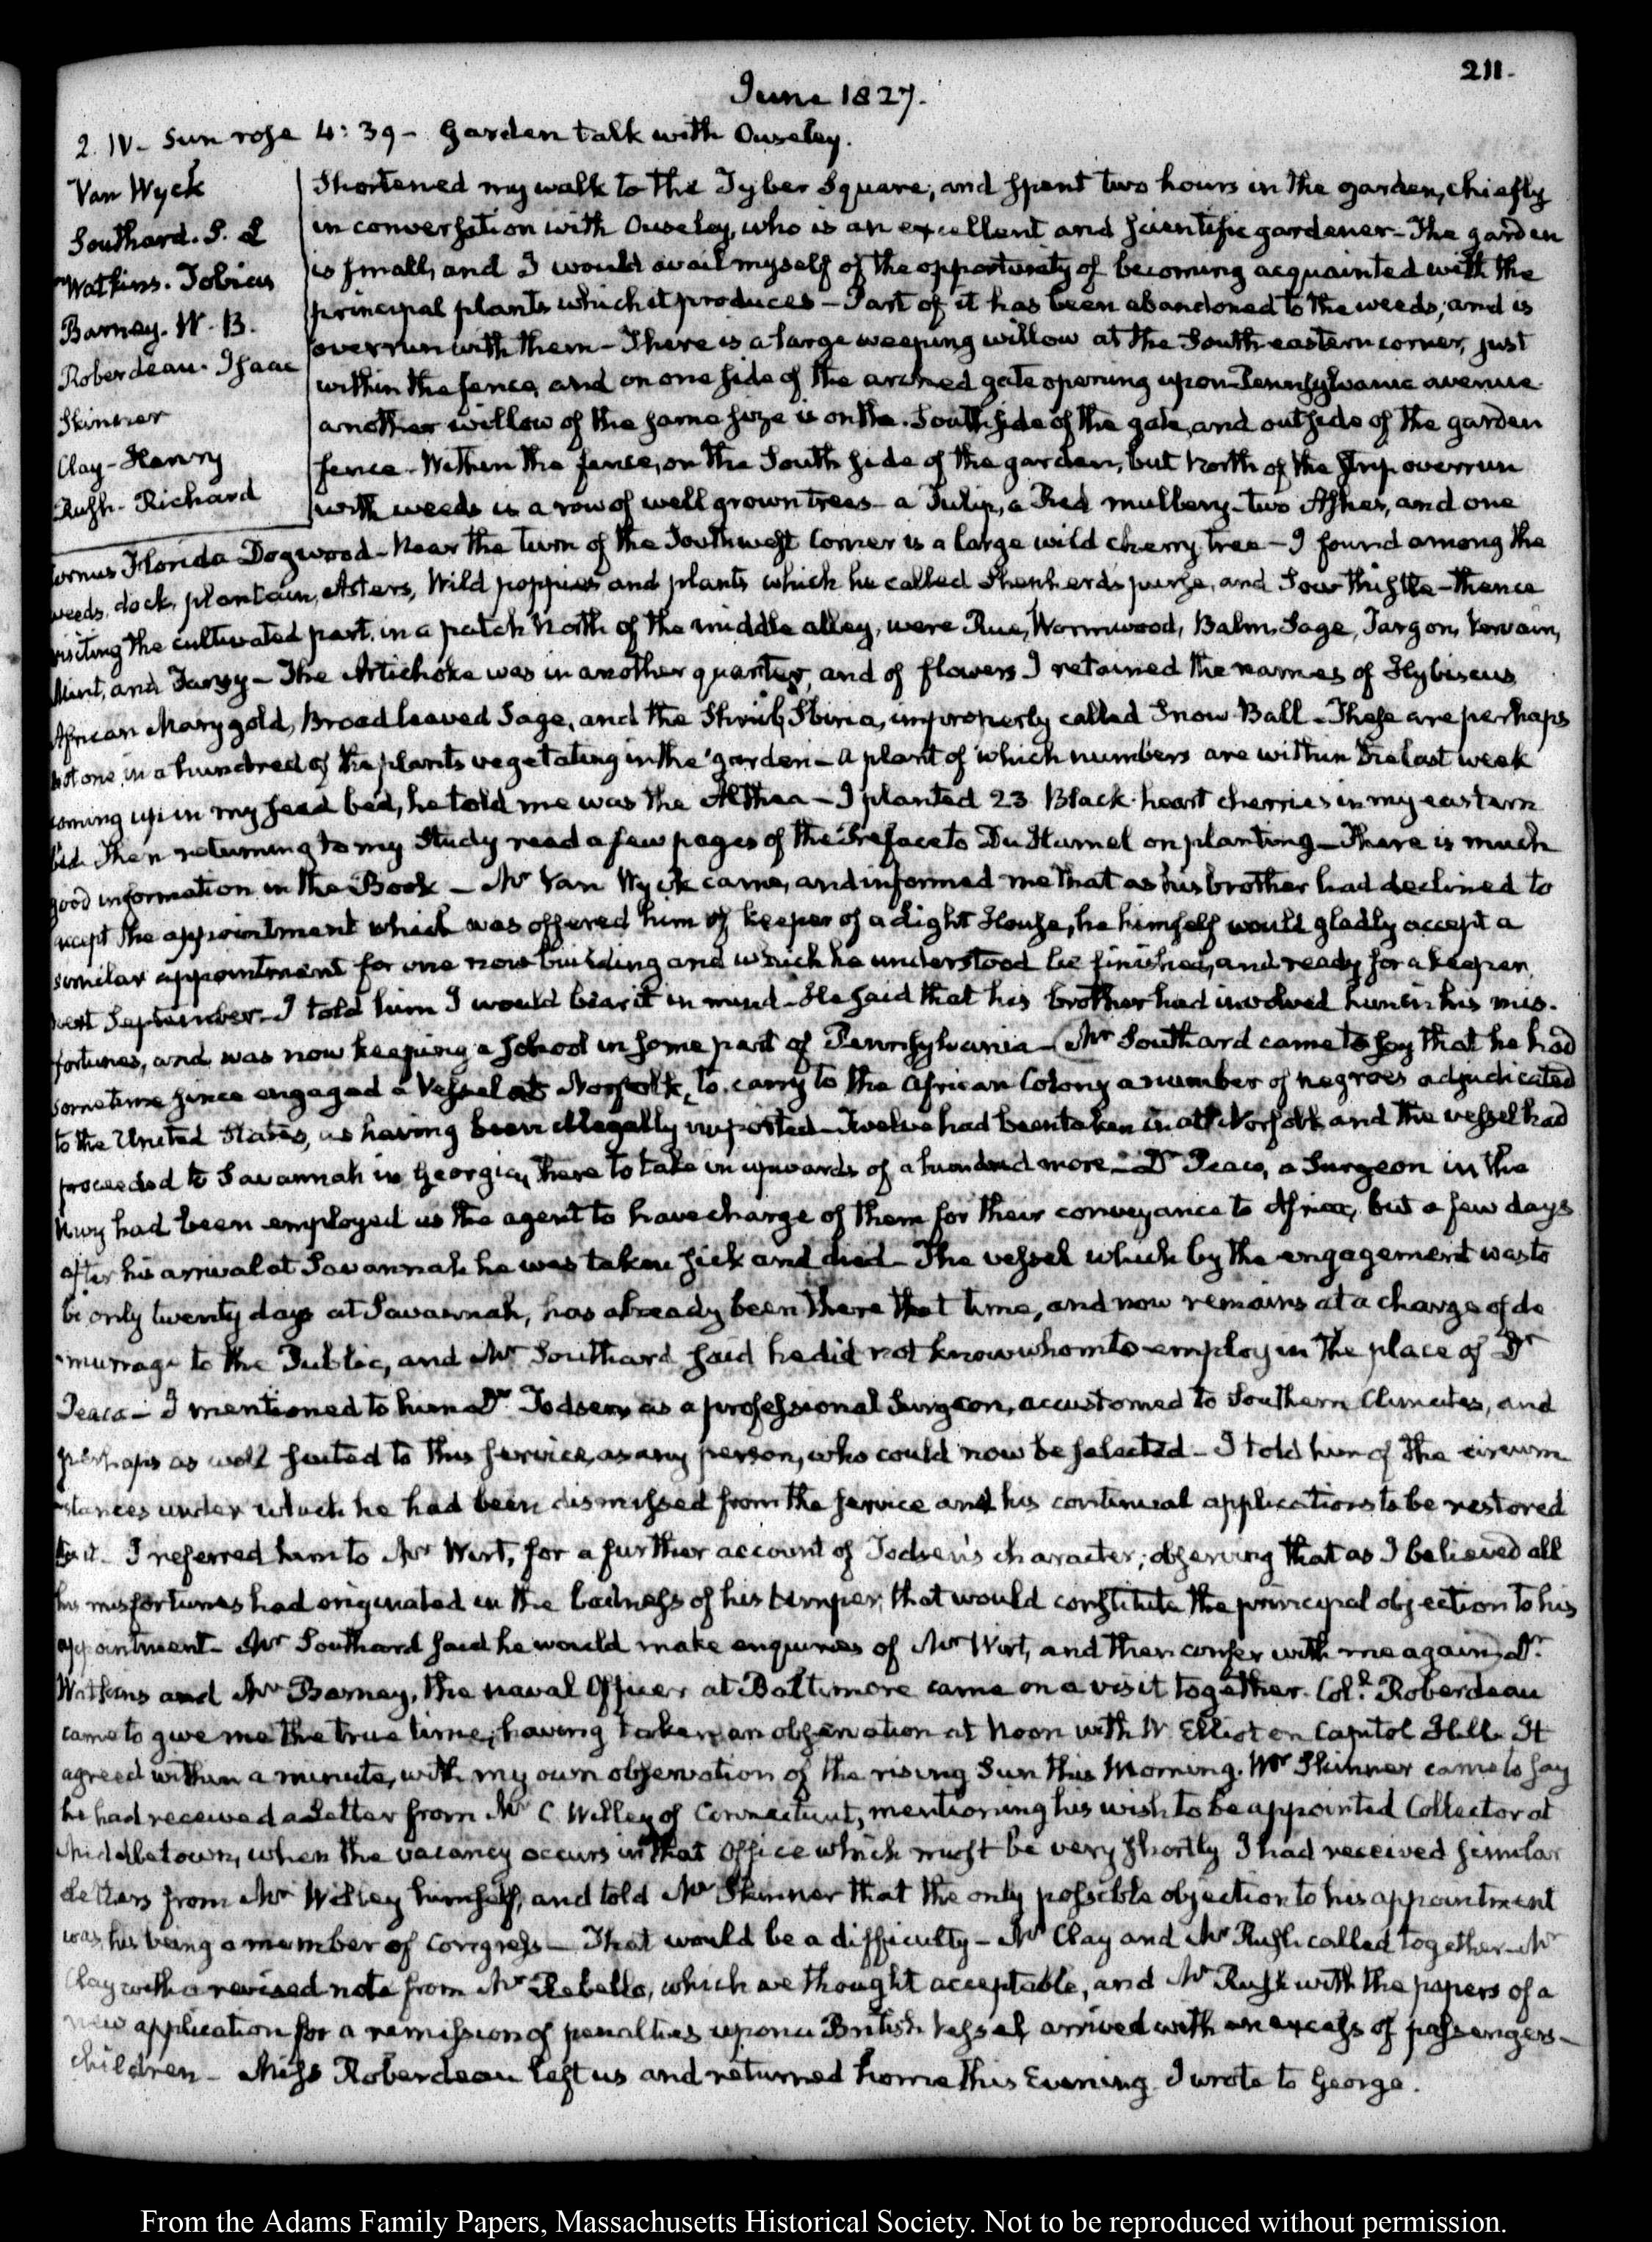 211.
June 1827.
2. IV. Sun rose 4:39 - Garden talk with Ouseley.
Van Wyck
Southard. S. L
Watkins. Tobias
Barney. W. B.
Roberdeau. Isaac
Skinner
Clay - Henry
Rush - Richard
Shortened my walk to the Tyber Square, and spent two hours in the garden, chiefly
in conversation with Ouseley, who is an excellent and scientific gardener - The garden
is small, and I would avail myself of the opportunity of becoming acquainted with the
principal plants which it produces - Part of it has been abandoned to the weeds, and is
overrun with them - There is a large weeping willow at the South eastern corner, just
within the fence, and on one side of the arched gate opening upon Pennsylvania avenue
another willow of the same size is on the South side of the gate, and outside of the garden
fence - Within the fence, on the South side of the garden, but North of the strip overrun
with weeds is a row of well grown trees - a Tulip, a Red mulbery - two Ashes, and one
Cornus Florida Dogwood - Near the turn of the Southwest corner is a large wild cherry tree - I found among the
weeds, dock, plantain, Asters, Wild poppies and plants which he called Shepherd's purse, and Sow thistle - thence
visiting the cultivated part, in a patch North of the middle alley, were Rue, Wormwood, Balm, Sage, Targon, Vervain,
Mint, and Tansy - The Artichoke was in another quarter, and of flowers I retained the names of Hybiscus
African Marygold, Broad leaved Sage, and the Shrub, improperly called Snow Ball - These are perhaps
not one in a hundred of the plants vegetating in the garden - a plant of which numbers are within the last week
coming up in my seed bed, he told me was the Althea - I planted 23 Black-heart cherries in my eastern
bed. Then returning to my Study read a few pages of the Preface to Du Hamel on planting - There is much
good information in the Book - Mr Van Wyck came, and informed me that as his brother had declined to
accept the appointment which was offered him of keeper of a Light House, he himself would gladly accept a
similar appointment for one now building and which he understood be finished, and ready for a keeper,
next September - I told him I would bear it in mind - He said that his brother had involved him in his mis-
fortunes, and was now keeping a School in some part of Pennsylvania - Mr Southard came to say that he had
sometime since engaged a Vessel at Norfolk, to carry to the African Colony a number of negroes adjudicated
to the United States, as having been illegally imported - Twelve had been taken in at Norfolk and the vessel had
proceeded to Savannah in Georgia, there to take in upwards of a hundred more - Dr Peaco, a Surgeon in the
Navy had been employed as the agent to have charge of them for their conveyance to Africa, but a few days
after his arrival at Savannah he was taken sick and died - The vessel which by the engagement was to
be only twenty days at Savannah, has already been there that time, and now remains at a charge of de
-murrage to the Public, and Mr Southard said he did not know whom to employ in the place of Dr
Peaco - I mentioned to him Dr Todsen, as a professional Surgeon, accustomed to Southern Climates, and
perhaps as well suited to this service, as any person, who could now be selected - I told him of the circum
-stances under which he had been dismissed from the service and his continual applications to be restored
to it - I referred him to Mr Wirt, for a further account of Todsen's character; observing that as I believed all
his misfortunes had originated in the badness of his temper, that would constitute the principal objection to his
appointment - Mr Southard said he would make enquiries of Mr Wirt, and then confer with me again - Dr
Watkins and Mr Barney, the naval Officer at Baltimore came on a visit together. Coll. Roberdeau
came to give me the true time, having taken an observation at Noon with W. Elliot on Capitol Hill. It
agreed within a minute, with my own observation of the rising Sun this Morning. Mr Skinner came to say
he had received a Letter from Mr C. Willey of Connecticut, mentioning his wish to be appointed Collector at
Middletown, when the vacancy occurs in that Office which must be very shortly I had received similar
Letters from Mr Willey himself, and told Mr Skinner that the only possible objection to his appointment
was, his being a member of Congress - That would be a difficulty - Mr Clay and Mr Rush called together - Mr
Clay with a revised note from Mr Rebello, which we thought acceptable, and Mr Rush with the papers of a
new application for a remission of penalties upon a British Vessel arrived with an excess of passengers -
children - Miss Roberdeau left us and returned home this Evening. I wrote to George.
From the Adams Family Papers, Massachusetts Historical Society. Not to be reproduced without permission.